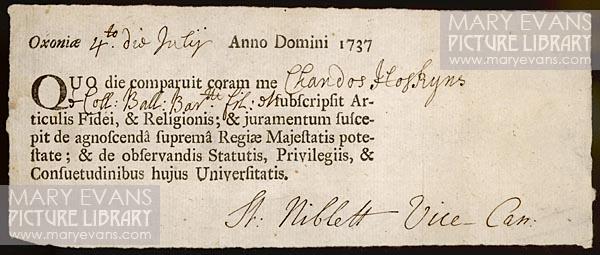 MARY EVANS
PICTURE LIBRARY
www.maryevans.com
Oxoniæ 4.to die Julij Anno Domini 1737
QUO die comparuit coram me Chandos Hoskyns
è Coll: Ball: Bar.tti fil: & subscripsit Ar-
ticulis Fidei, & Religionis; & juramentum susce-
pit de agnoscendâ supremâ Regiæ Majestatis pote-
state; & de observandis Statutis, Privilegiis, &
Consuetudinibus hujus Universitatis.
St. Niblett Vice-Can:
MARY EVANS
PICTURE LIBRARY
www.maryevans.com
MARY EVANS
PICTURE LIBRARY
www.maryevans.com